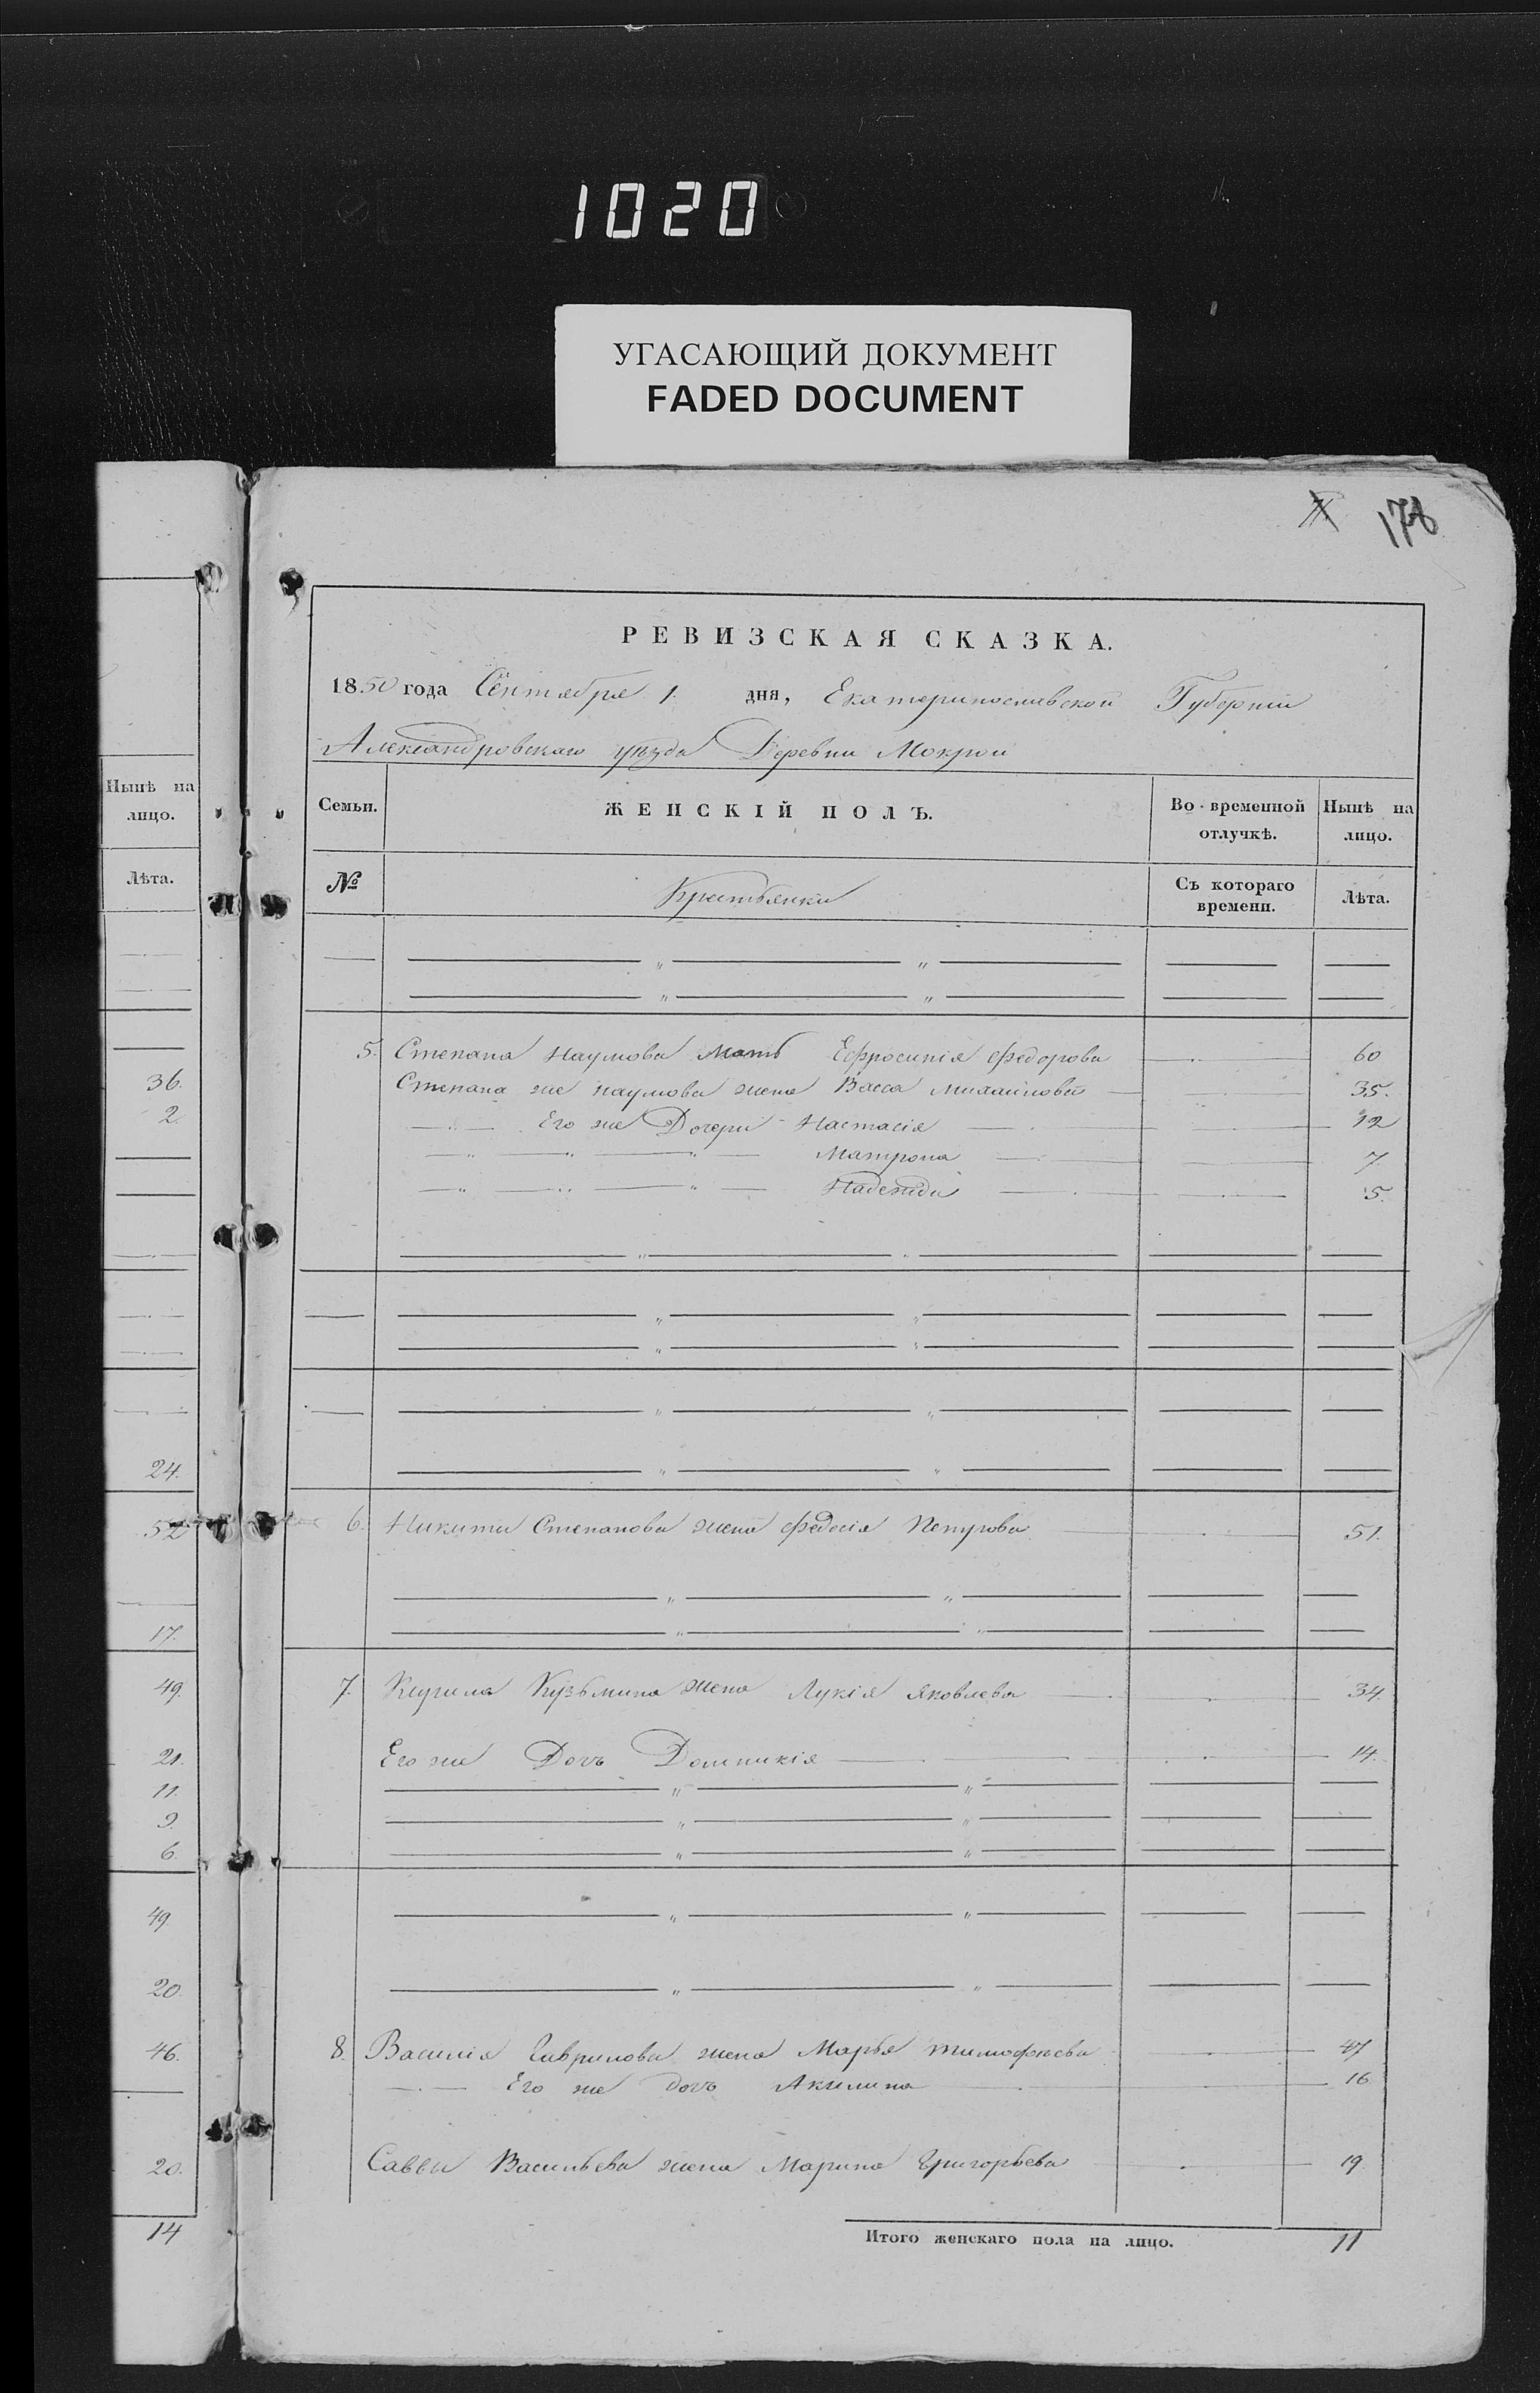 1020
УГАСАЮЩИЙ ДОКУМЕНТ
FADED DOCUMENT
178
РЕВИЗСКАЯ СКАЗКА.
1850 года Сентября 1. дня, Екатеринославской Губернии
Александровскаго уѣзда Деревни Мокрой
Нынѣ на лицо.
Лѣта.
36.
2.
24.
52
17.
49.
21.
11.
9.
6.
49.
20.
46.
20.
14
Семьи. ЖЕНСКІЙ ПОЛЪ. Во временной отлучкѣ. Нынѣ на лицо.
№ Крестьянки Съ котораго времени. Лѣта.
5. Степана Наумова мать Ефросинія Федорова 60
Степана же Наумова жена Васса Михайлова 35.
Его же Дочери Настасія 12
Матрона 7.
Надежда 5.
6. Никиты Степанова жена Федосія 51.
7. Кузьмина жена Лукія Яковлева 34.
Его же Дочь Домникія 14.
8. Василія Гаврилова жена Марья Тимофѣева 47
Его же дочь Акилина 16
Саввы Васильева жена Марина Григорьева 19
Итого женскаго пола на лицо. 11